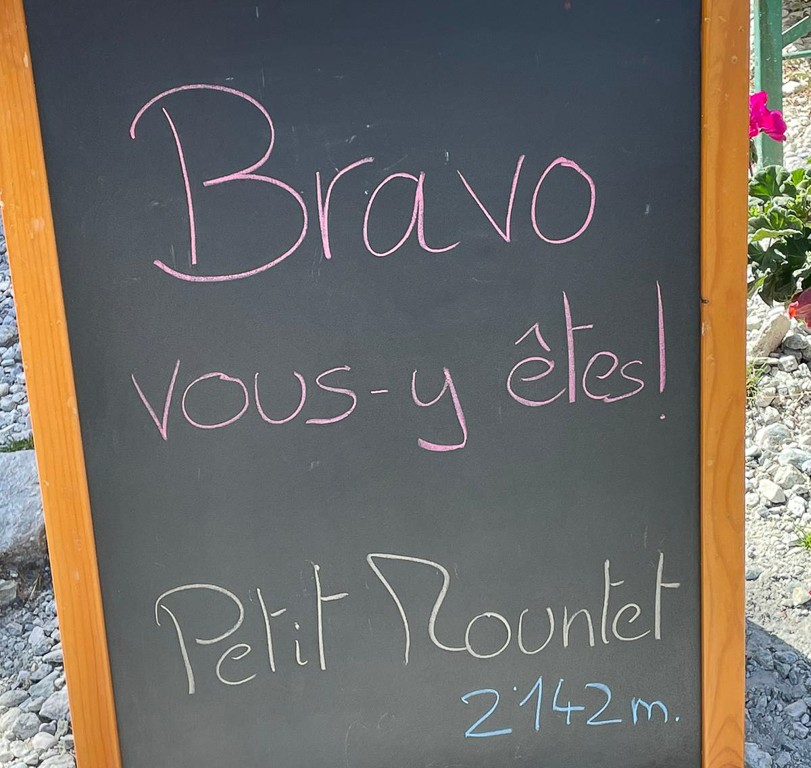 Bravo
vous-y êtes!
Petit Mountet
2'142 m.